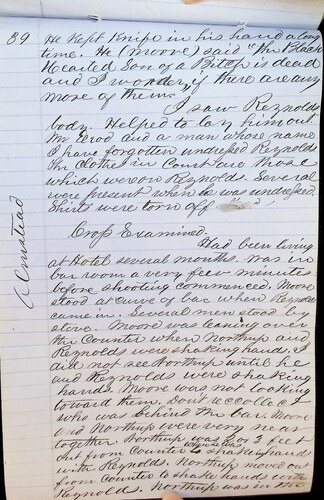 89 He Kept Knife in his hand a long
time. He (Moore) said "the Black
Hearted Son of a Bitch is dead
and I wonder if there are any
more of them."
I saw Reynolds
body. Helped to lay him out.
Mr and a man whose name
I have forgotten undressed Reynolds
The clothes in Court are those
which were on Reynolds. Several
were present when he was undressed.
Shirts were torn off
Cross Examined.
Had been living
at Hotel several months. was in
bar room a very few minutes
before shooting commenced. Moore
stood at curve of bar when Reynolds
came in. Several men stood by
stove. Moore was leaning over
the Counter when Northup and
Reynolds were shaking hands. I
did not see Northup until he
and Reynolds were shaking
hands. Moore was not looking
toward them. Don't recollect
who was behind the bar. Moore
and Northup were very near
together. Northup was 2 or 3 feet
out from Counter when shaking hands
with Reynolds. Northup moved out
from Counter to shake hands with
Reynolds. Northup was in the
Olmstead